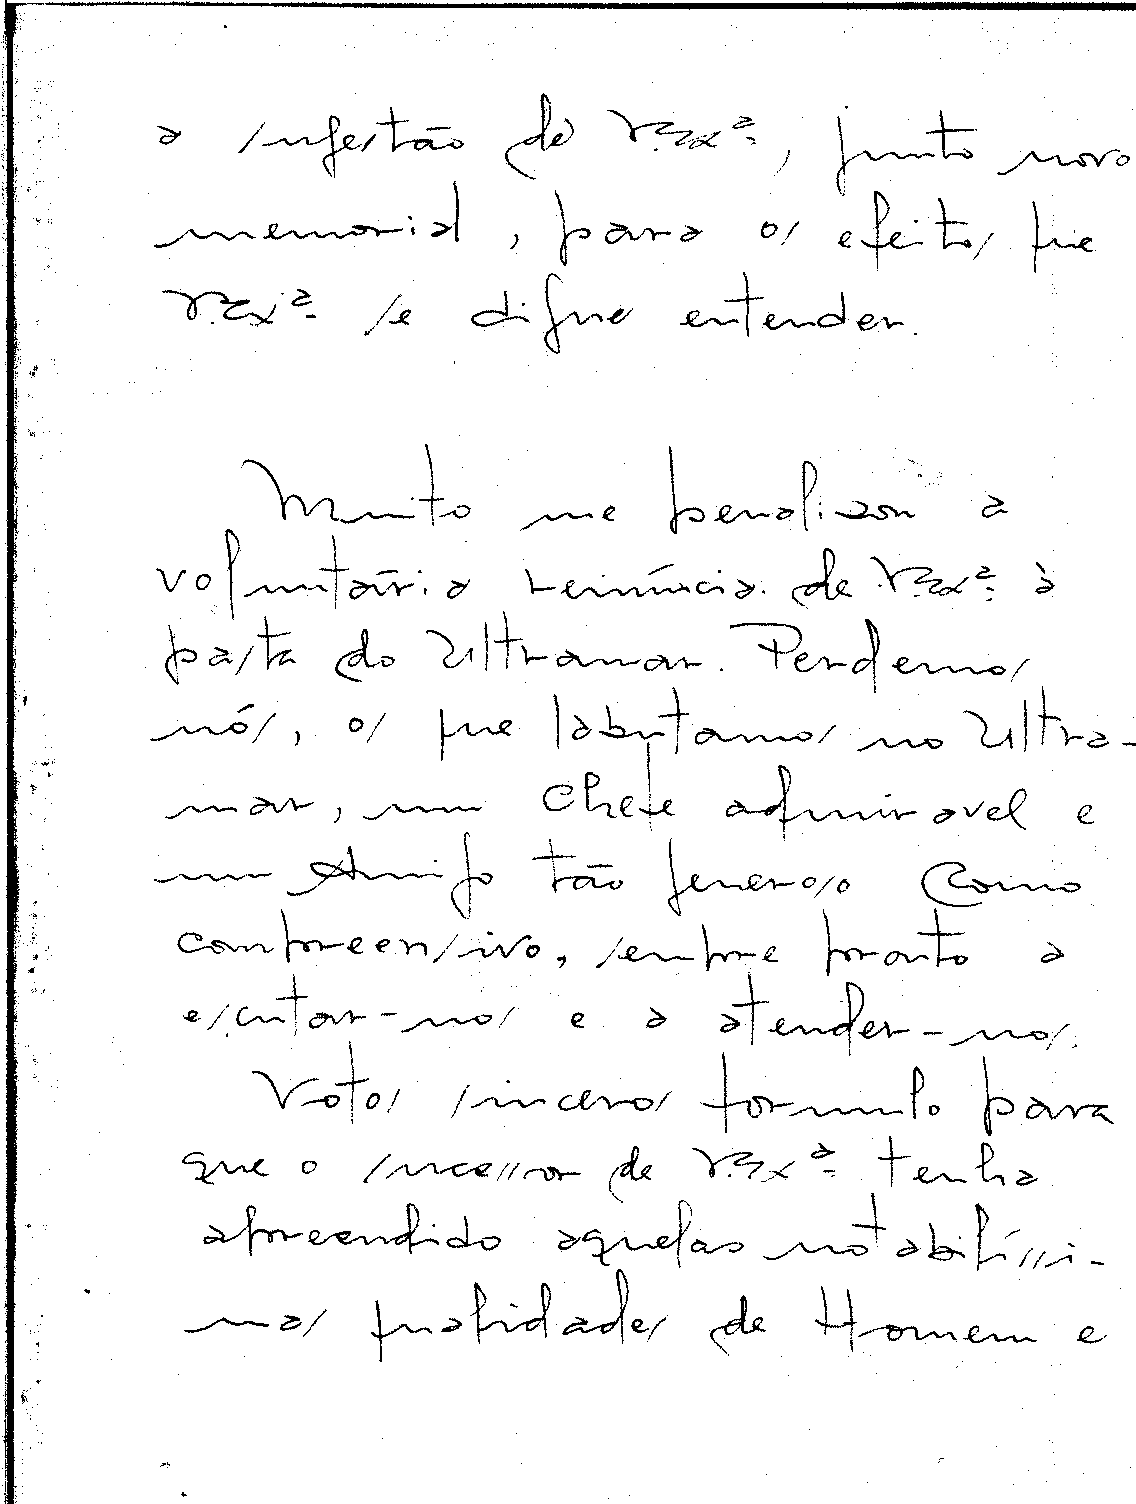 a sugestão de V. Exª., junto novo
memorial, para os efeitos que
V. Exª. se digne entender.
Muito me penalizou a
voluntária renúncia de V. Exª. à
pasta do Ultramar. Perdemos
nós, os que labutamos no Ultra-
mar, um Chefe admiravel e
um Amigo tão generoso como
compreensivo, sempre pronto a
escutar-nos e a atender-nos.
Votos sinceros formulo para
que o sucessor de V. Exª. tenha
apreendido aquelas notabilíssi-
mas qualidades de Homem e